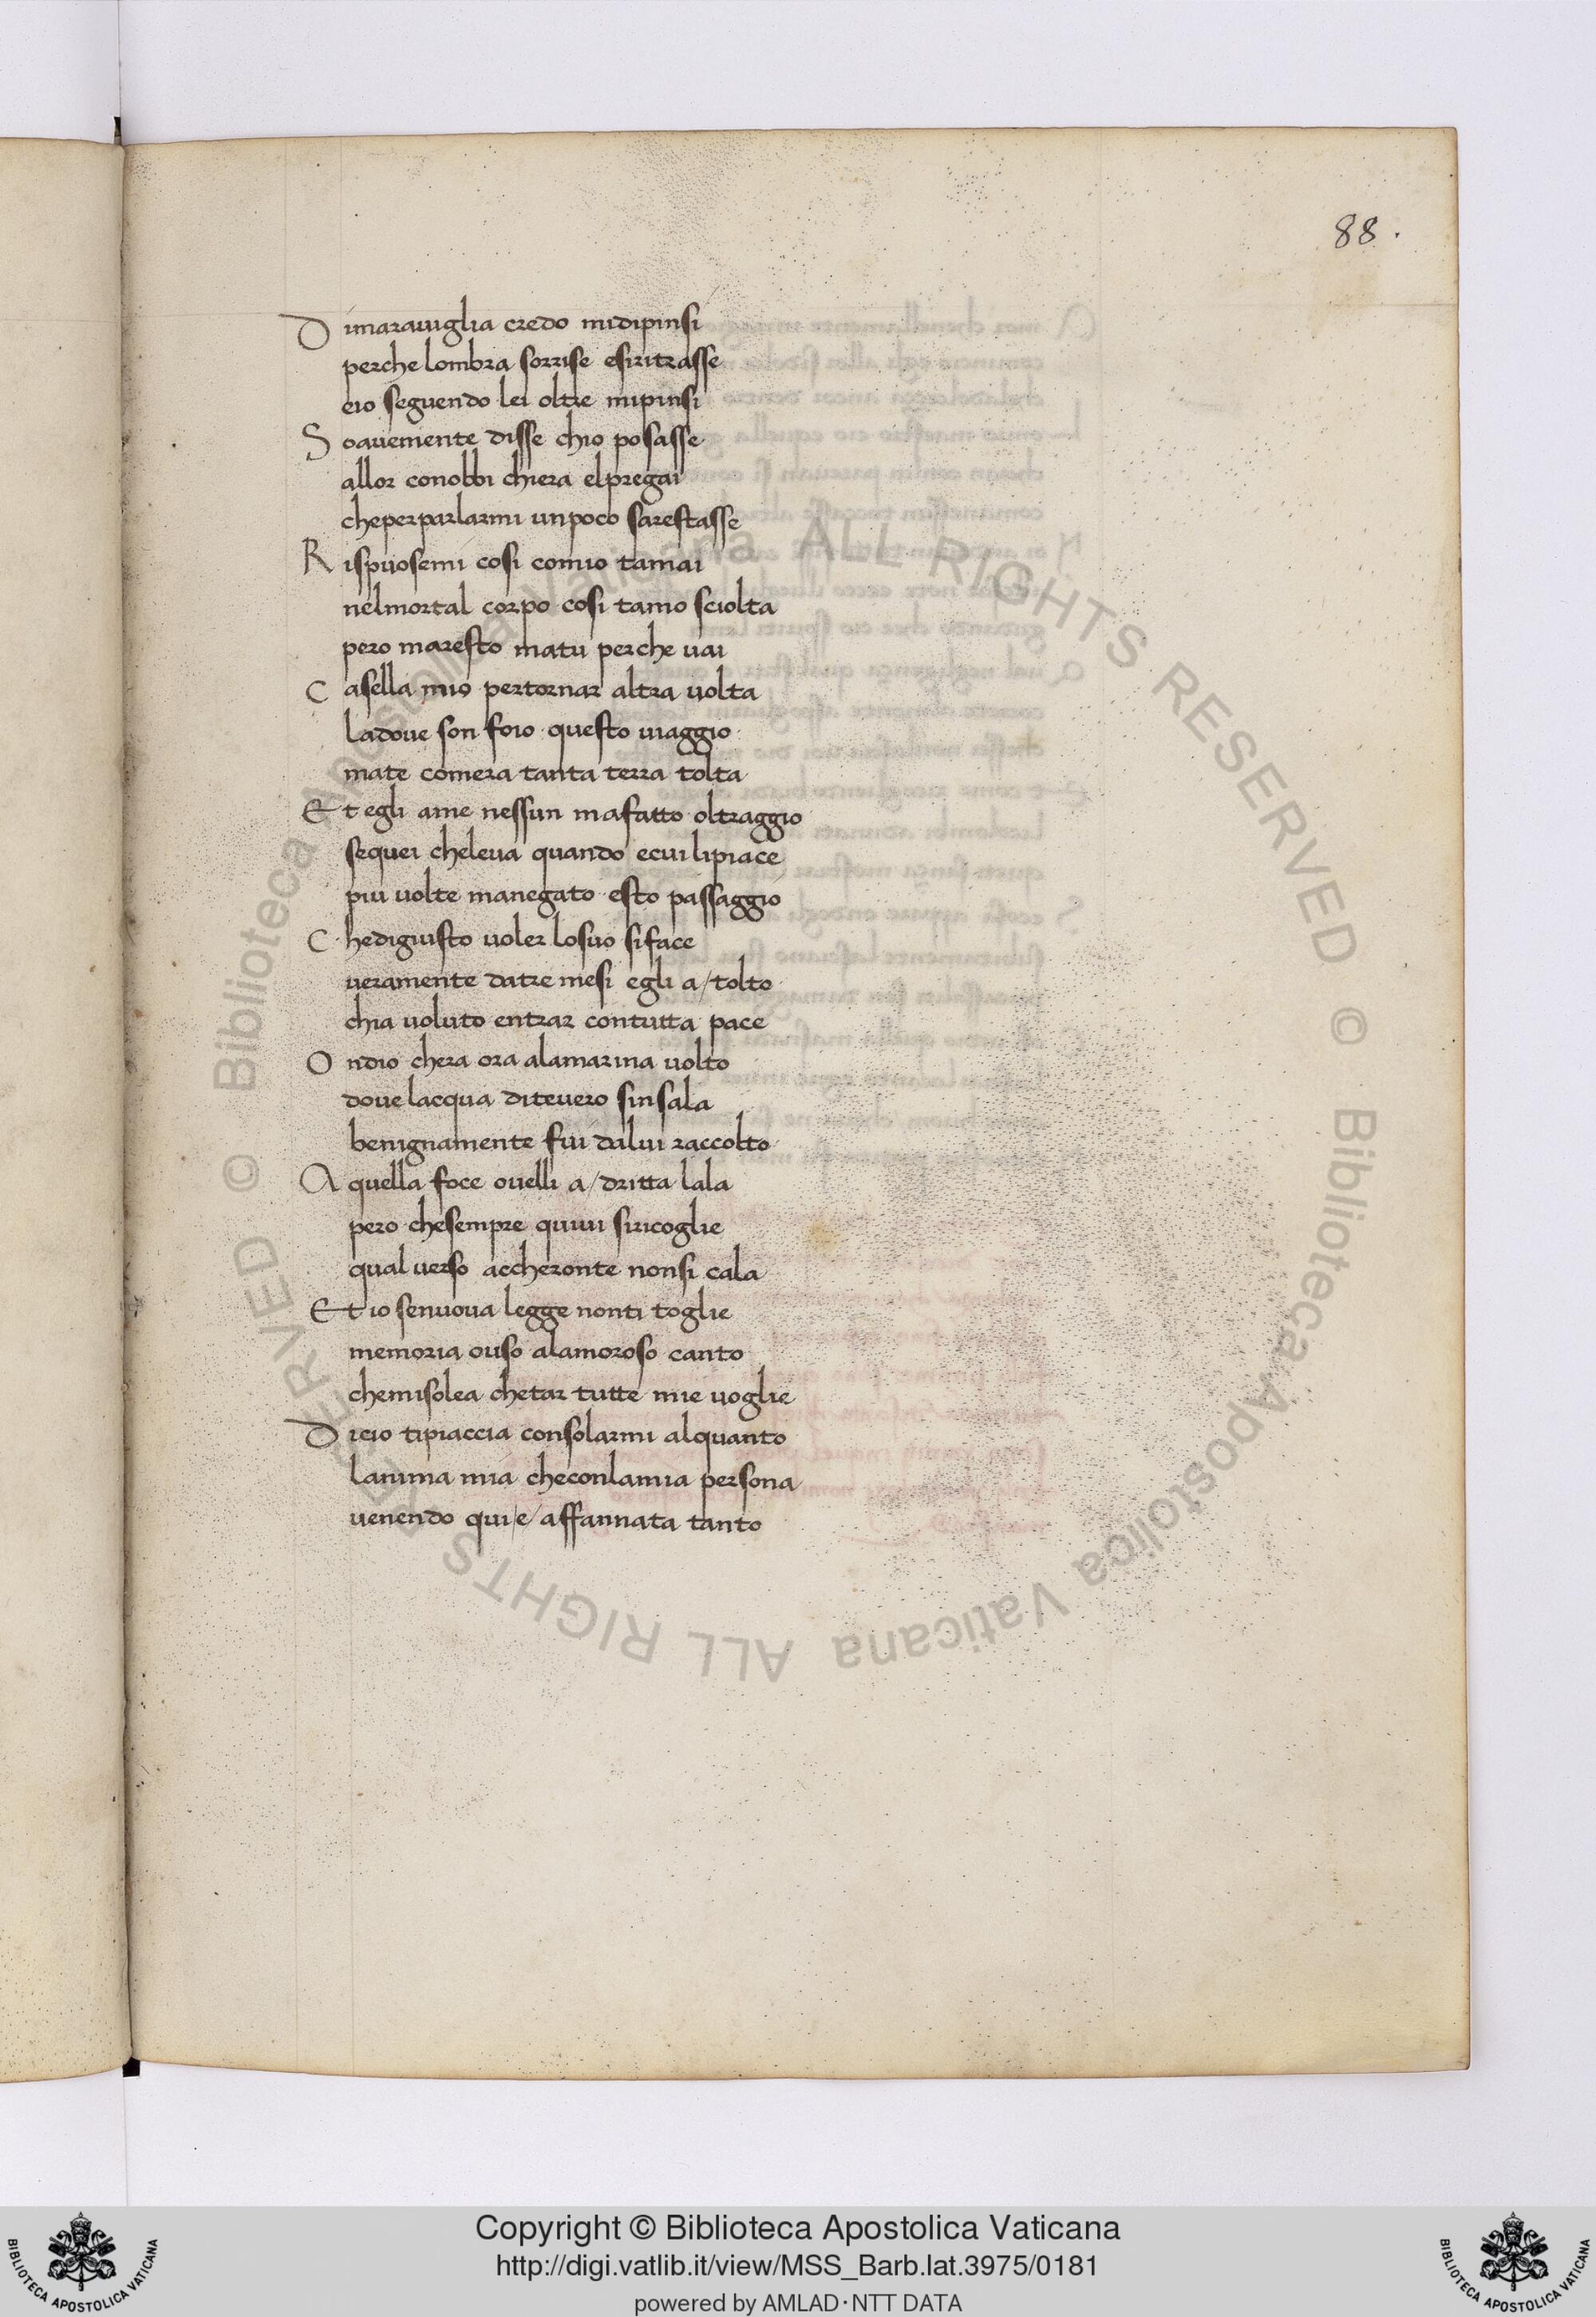 88.
D imaraviglia credo midipinsi
perche lombra sorrise esiritrasse
eio seguendo lei oltre mipinsi
S oavemente disse chio posasse
allor conobbi chiera elpregai
cheperparlarmi unpoco sarestasse
R ispuosemi cosi comio tamai
nelmortal corpo cosi tamo sciolta
pero maresto matu perche vai
C asella mio pertornar altra volta
ladove son foio questo viaggio
mate comera tanta terra tolta
E t egli ame nessun mafatto oltraggio
sequei cheleva quando ecui lipiace
piu volte manegato esto passaggio
C hedigiusto voler losuo siface
veramente datre mesi egli a/tolto
chia voluto entrar contutta pace
O ndio chera ora alamarina volto
dove lacqua ditevero sinsala
benignamente fui dalui raccolto
A quella foce ovelli a/dritta lala
pero chesempre quivi siricoglie
qual verso accheronte nonsi cala
E t io senuova legge nonti toglie
memoria ouso alamoroso canto
chemisolea chetar tutte mie voglie
D icio tipiaccia consolarmi alquanto
lanima mia checonlamia persona
venendo qui/e/affannata tanto
© Biblioteca Apostolica Vaticana ALL RIGHTS RESERVED © Biblioteca Apostolica Vaticana ALL RIGHTS RESERVED
Copyright © Biblioteca Apostolica Vaticana
http://digi.vatlib.it/view/MSS_Barb.lat.3975/0181
powered by AMLAD·NTT DATA
BIBLIOTECA APOSTOLICA VATICANA
BIBLIOTECA APOSTOLICA VATICANA